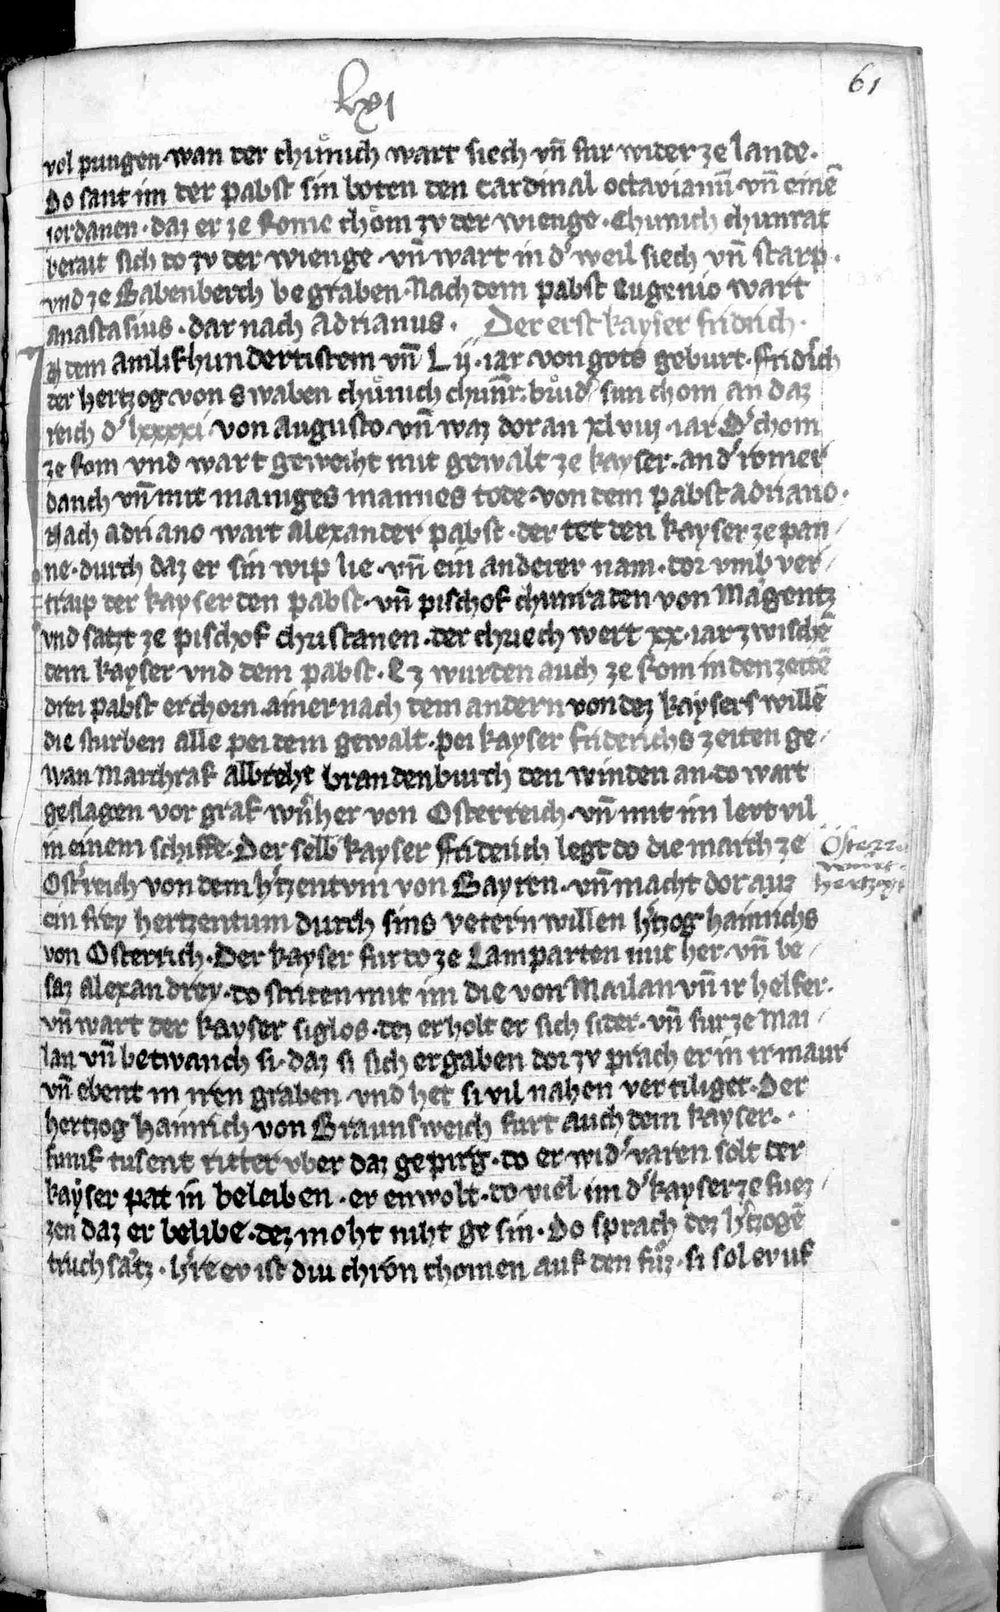 lxi
61
vol pungen · wan der chuͤnich wart siech vn̄ fur wider ze lande ·
Do sant im der pabst sin boten den cardinal octavianū · vn̄ einē
iordanen · daz er ze Rome chōm zv der wienge · Chunich chunrat
berait sich do zv der wienge · vn̄ wart in d' weil siech vn̄ starp ·
vnd ze Babenberch begraben · Nach dem pabst Eugenio wart
anastasius · dar nach adrianus · Der erst kayser fridrich ·
N dem ainlifhundertistem vn̄ L ij · iar · von gots geburt · ffridrich
der hertzog von swaben chuͤnich chunr̄ · bruͦd' sun chom an daz
reich d' lxxxxi von augusto · vn̄ waz doran xlviij · iar D' chom
ze Rom vnd wart geweiht mit gewalt ze kayser · an d' romer
danch vn̄ mit maniges mannes tode · von dem pabst adriano ·
Nach adriano wart alexander pabst · der tet den kayser ze pan
ne · durch daz er sin wip lie · vn̄ ein anderev nam · dor vmb ver
traip der kayser den pabst · vn̄ pischof chunraden von Magentz
vnd satzt ze pischof christanen · der chriech wert xx · iar zwischē
dem kayser vnd dem pabst · Ez wurden auch ze Rom in den zeitē
drei pabst erchorn ainer nach dem andern von dez kaysers willē
die sturben alle pei dem gewalt · pei kayser friderichs zeiten ge
wan Marchraf albreht brandenburch den winden an · do wart
geslagen vor graf wn̄her von Osterreich · vn̄ mit im levt vil
in einem schiffe · Der selb kayser ffriderich legt do die march ze
Ost'reich von dem h'tzentvm von Bayren · vn̄ macht dor auz
ein frey hertzentum durch sins vetern willen h'tzog hainrichs
von Osterrich · Der kayser fur do ze Lamparten mit her · vn̄ be
saz alexandrey · do striten mit im die von Mailan vn̄ ir helfer ·
vn̄ wart der kayser siglos · dez erholt er sich sider · vn̄ fur ze Mai
lan vn̄ betwanch si · daz si sich ergaben dor zv prach er in ir maur
vn̄ ebent in iren graben · vnd het si vil nahen vertiliget · Der
hertzog hainrich von Braunsweich furt auch dem kayser ·
funf tusent ritter vber daz gepirg · do er wid' varen solt der
kayser pat in beleiben · er enwolt · do viel im d' kayser ze fuez
zen daz er belibe · dez moht niht ge sin · Do sprach dez h'tzogē
truchsatz · h're ev ist div chron chomen auf den fuͤz · si sol ev uf
Osterr
wirt
hertzogt